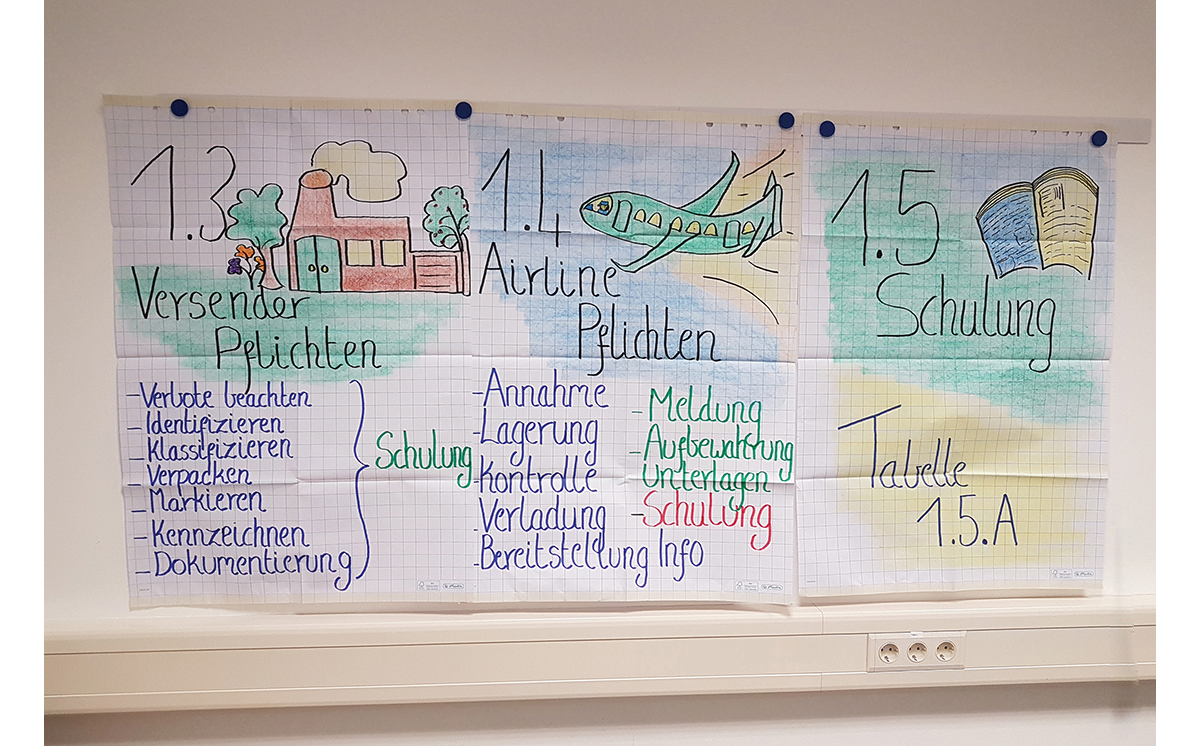 1.3
Versender
Pflichten
-Verbote beachten
-Identifizieren
-Klassifizieren
-Verpacken
-Markieren
-Kennzeichnen
-Dokumentierung
Schulung
1.4
Airline
Pflichten
-Annahme
-Lagerung
-Kontrolle
-Verladung
-Bereitstellung Info
-Meldung
-Aufbewahrung
Unterlagen
-Schulung
1.5
Schulung
Tabelle
1.5.A